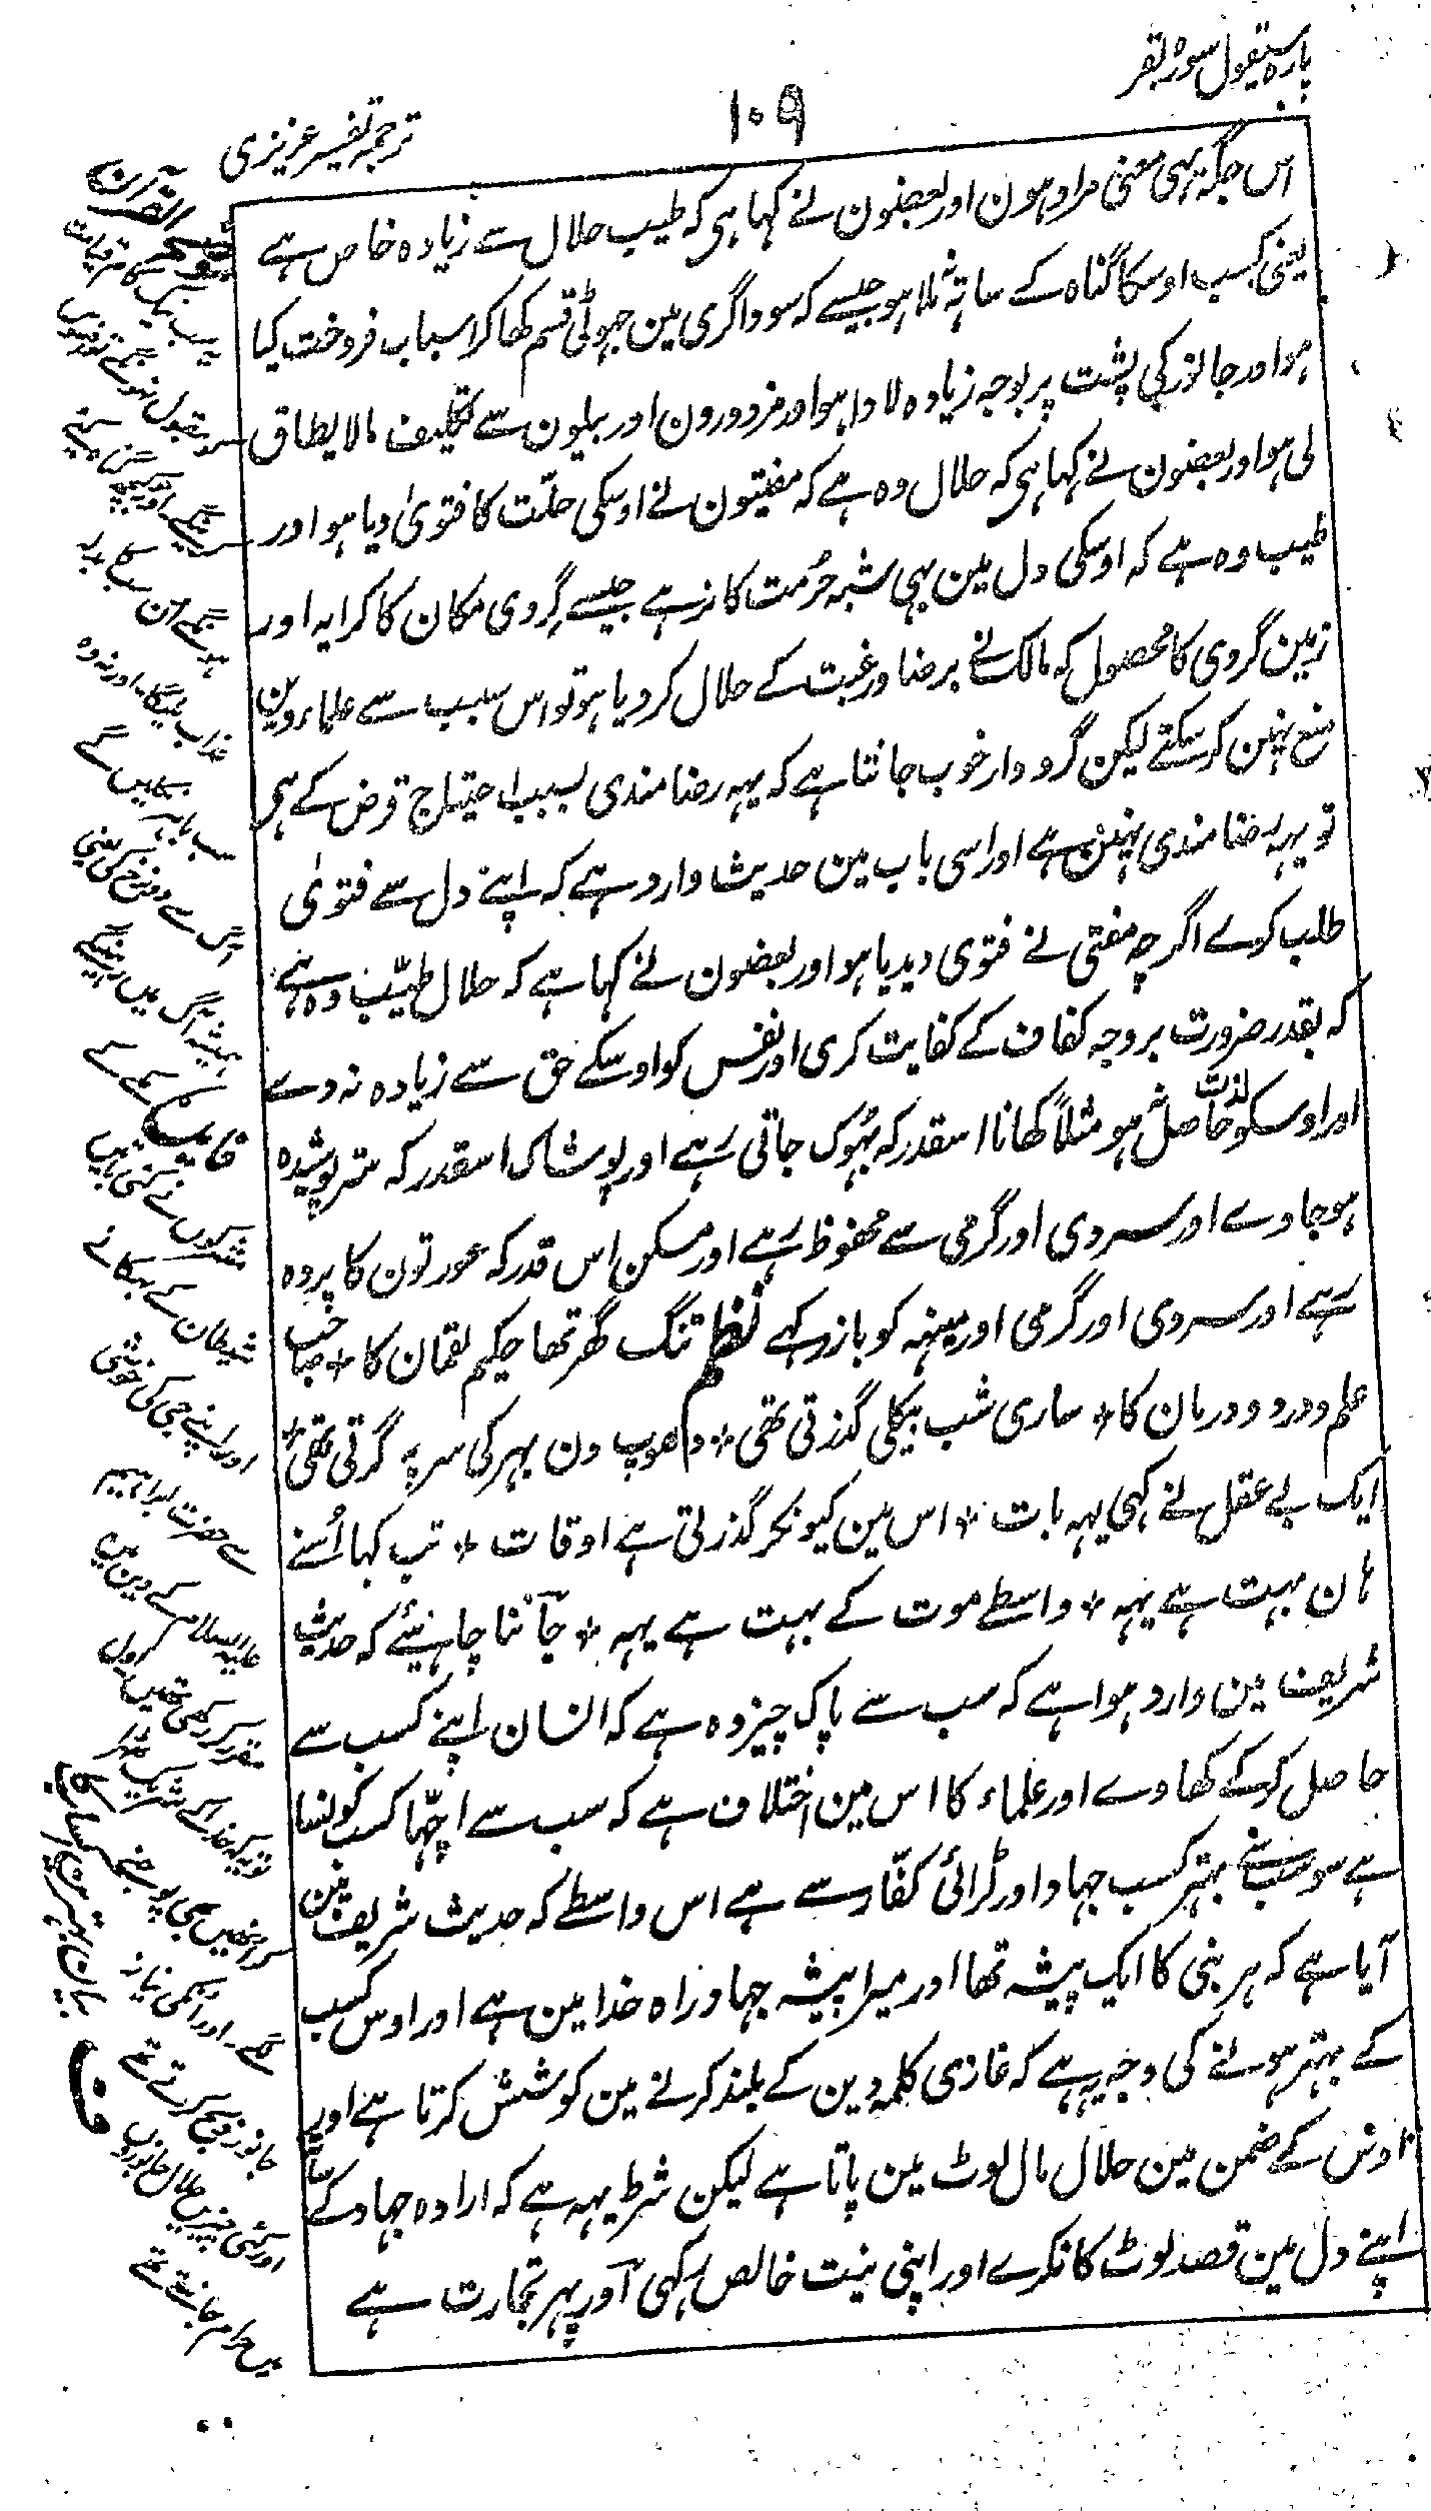 پارہ سیقول سورہ بقر
۱۰۹
ترجمہ تفسیر عزیزی
اس جگہ یہی معنی مراد ہون اور بعضون نے کہا ہی کہ طیب حلال سے زیادہ خاص ہے
یعنی کسب اوسکا گناہ کے ساتھ نہ ملا ہو جیسے کہ سوداگری مین جہوٹی قسم کھا کر اسباب فروخت کیا
ہو اور جانور کی پشت پر بوجہ زیادہ لادا ہو اور مزدورون اور بیلون سے تکلیف مالا یطاق
لی ہو اور بعضون نے کہا ہی کہ حلال وہ ہے کہ مفتیون نے اوسکی حلّت کا فتویٰ دیا ہو اور
طیب وہ ہے کہ اوسکی دل مین بہی شبہ حُرمت کا نرہے جیسے گِروی مکان کا کرایہ اور
زمین گروی کا محصول کہ مالک نے برضا ورغبت کے حلال کر دیا ہو تو اس سبب سے علماء دین
منع نہین کر سکتے لیکن گرودار خوب جانتا ہے کہ یہہ رضامندی بسبب احتیاج قرض کے ہی
تو یہہ رضامندی نہین ہے اور اسی باب مین حدیث وارد ہے کہ اپنے دل سے فتویٰ
طلب کرے اگرچہ مفتی نے فتویٰ دیدیا ہو اور بعضون نے کہا ہے کہ حلال طیّب وہ ہے
کہ بقدر ضرورت بروجہ کفاف کے کفایت کری اور نفس کو اوسکے حق سے زیادہ نہ دے
اور اوسکو لذت حاصل ہو مثلاً کھانا اسقدر کہ بُہوک جاتی رہے اور پوشاک اسقدر کہ ستر پوشیدہ
ہو جاوے اور سردی اور گرمی سے محفوظ رہے اور مسکن اس قدر کہ عورتون کا پردہ
رہے اور سردی اور گرمی اور مینہہ کو باز رکہے نظم تنگ گھر تھا حکیم لقمان کا * صاحب
علم و درد و درمان کا * ساری شب بیکلی گذرتی تھی * دھوپ دن بہر کی سر پہ گرتی تھی *
ایک بے عقل نے کہی یہہ بات * اس مین کیونکر گذرتی ہے اوقات * تب کہا اُسنے
ہان بہت ہے یہہ * واسطے موت کے بہت ہے یہہ * جاننا چاہئیے کہ حدیث
شریف مین وارد ہوا ہے کہ سب سے پاک چیز وہ ہے کہ انسان اپنے کسب سے
حاصل کر کے کھاوے اور علماء کا اس مین اختلاف ہے کہ سب سے اچّھا کسب کونسا
ہے سو سبسے بہتر کسب جہاد اور لڑائی کفّار سے ہے اس واسطے کہ حدیث شریف مین
آیا ہے کہ ہر نبی کا ایک پیشہ تھا اور میرا پیشہ جہاد راہ خدا مین ہے اور اوس کسب
کے بہتر ہونے کی وجہ یہ ہے کہ غازی کلمہ دین کے بلند کرنے مین کوشش کرتا ہے اور
اوس کے ضمن مین حلال مال لوٹ مین پاتا ہے لیکن شرط یہہ ہے کہ ارادہ جہاد کے ساتھ
اپنے دل مین قصد لوٹ کا نکرے اور اپنی نیت خالص رکہی اور پہر تجارت ہے
عذاب ہوگا۔ اور نہ وہ
ہمیشہ آگ میں
مشرکوں نے کتنی
شیطان کے بہکانے
اور اپنے جی کی خوشی
سے حضرت ابراہیم
علیہ السلام کے دین میں
مقرر کر رکھی تھیں
جانور ذبح کرتے تھے
اور کئی چیزیں حلال جانوروں
میں حرام جانتے تھے
ف